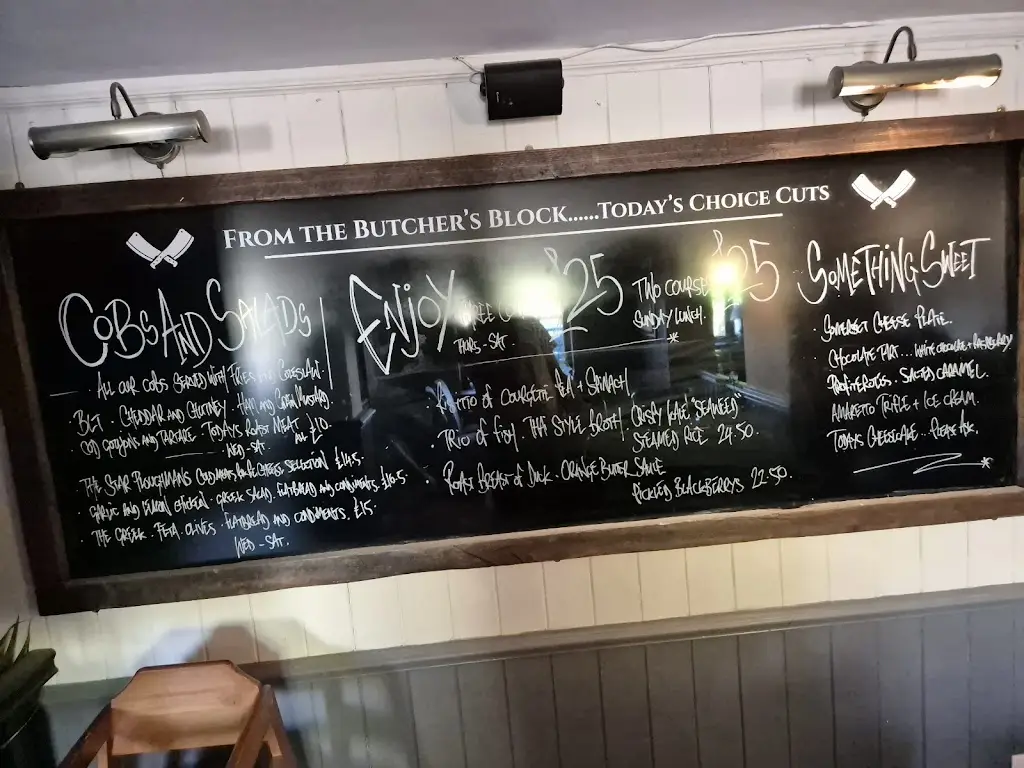 FROM THE BUTCHER'S BLOCK......TODAY'S CHOICE CUTS
COBS AND SALADS
ALL OUR COBS SERVED WITH FRIES AND COLESLAW.
BLT · CHEDDAR AND CHUTNEY · HAM AND GRAIN MUSTARD
COD GOUJONS AND TARTARE · TODAYS ROAST MEAT · ALL £10.
WED - SAT.
· THE STAR PLOUGHMANS CHEESES SELECTION £14.5.
· GARLIC AND LEMON CHICKEN · GREEK SALAD · FLATBREAD AND CONDIMENTS. £16.5.
· THE GREEK · FETA · OLIVES · FLATBREAD AND CONDIMENTS. £15.
WED - SAT.
ENJOY THREE £25
THURS - SAT.
TWO COURSE £25
SUNDAY LUNCH.
· RISOTTO OF COURGETTE PEA + SPINACH
· TRIO OF FISH · THAI STYLE BROTH, CRISPY KALE "SEAWEED"
STEAMED RICE 24.50.
· ROAST BREAST OF DUCK · ORANGE BUTTER SAUCE
PICKLED BLACKBERRYS 22.50.
SOMETHING SWEET
· SOMERSET CHEESE PLATE.
CHOCOLATE TART... WHITE CHOCOLATE + RASPBERRY
PROFITEROLES · SALTED CARAMEL.
AMARETTO TRIFLE + ICE CREAM.
TODAYS CHEESECAKE... PLEASE ASK.